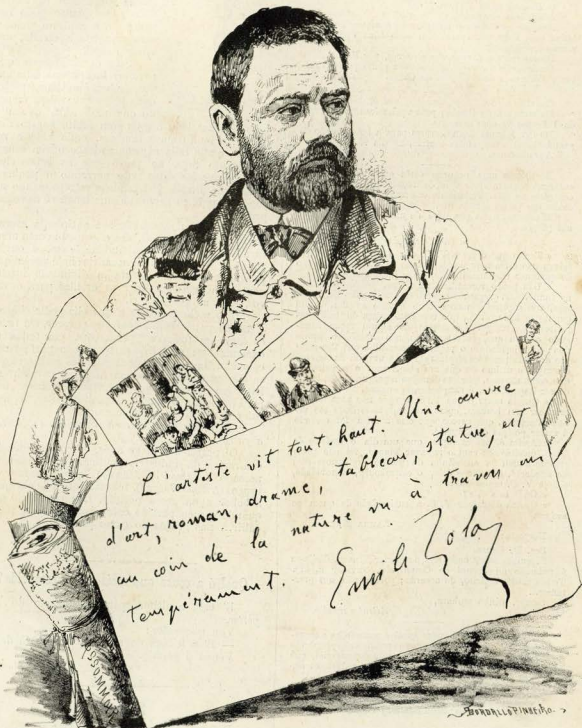 L'artiste vit tout.haut. Une œuvre
d'art, roman, drame, tableau, statue, est
un coin de la nature vu à travers un
tempérament. Emile Zola
ASSOMMO
BORDALLO PINHEIRO.